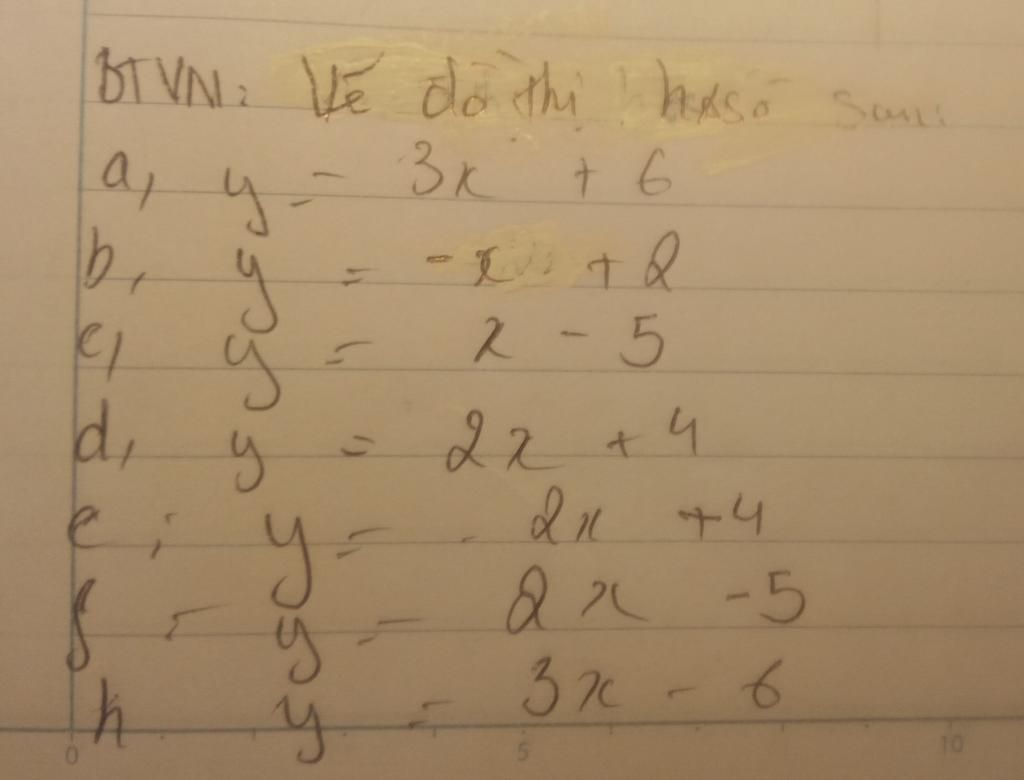 BTVN: Vẽ đồ thị h/số sau:
a, y = 3x + 6
b, y = -x + 2
c, y = x - 5
d, y = 2x + 4
e; y = - 2x + 4
f - y = 2x - 5
h y = 3x - 6
0 5 10